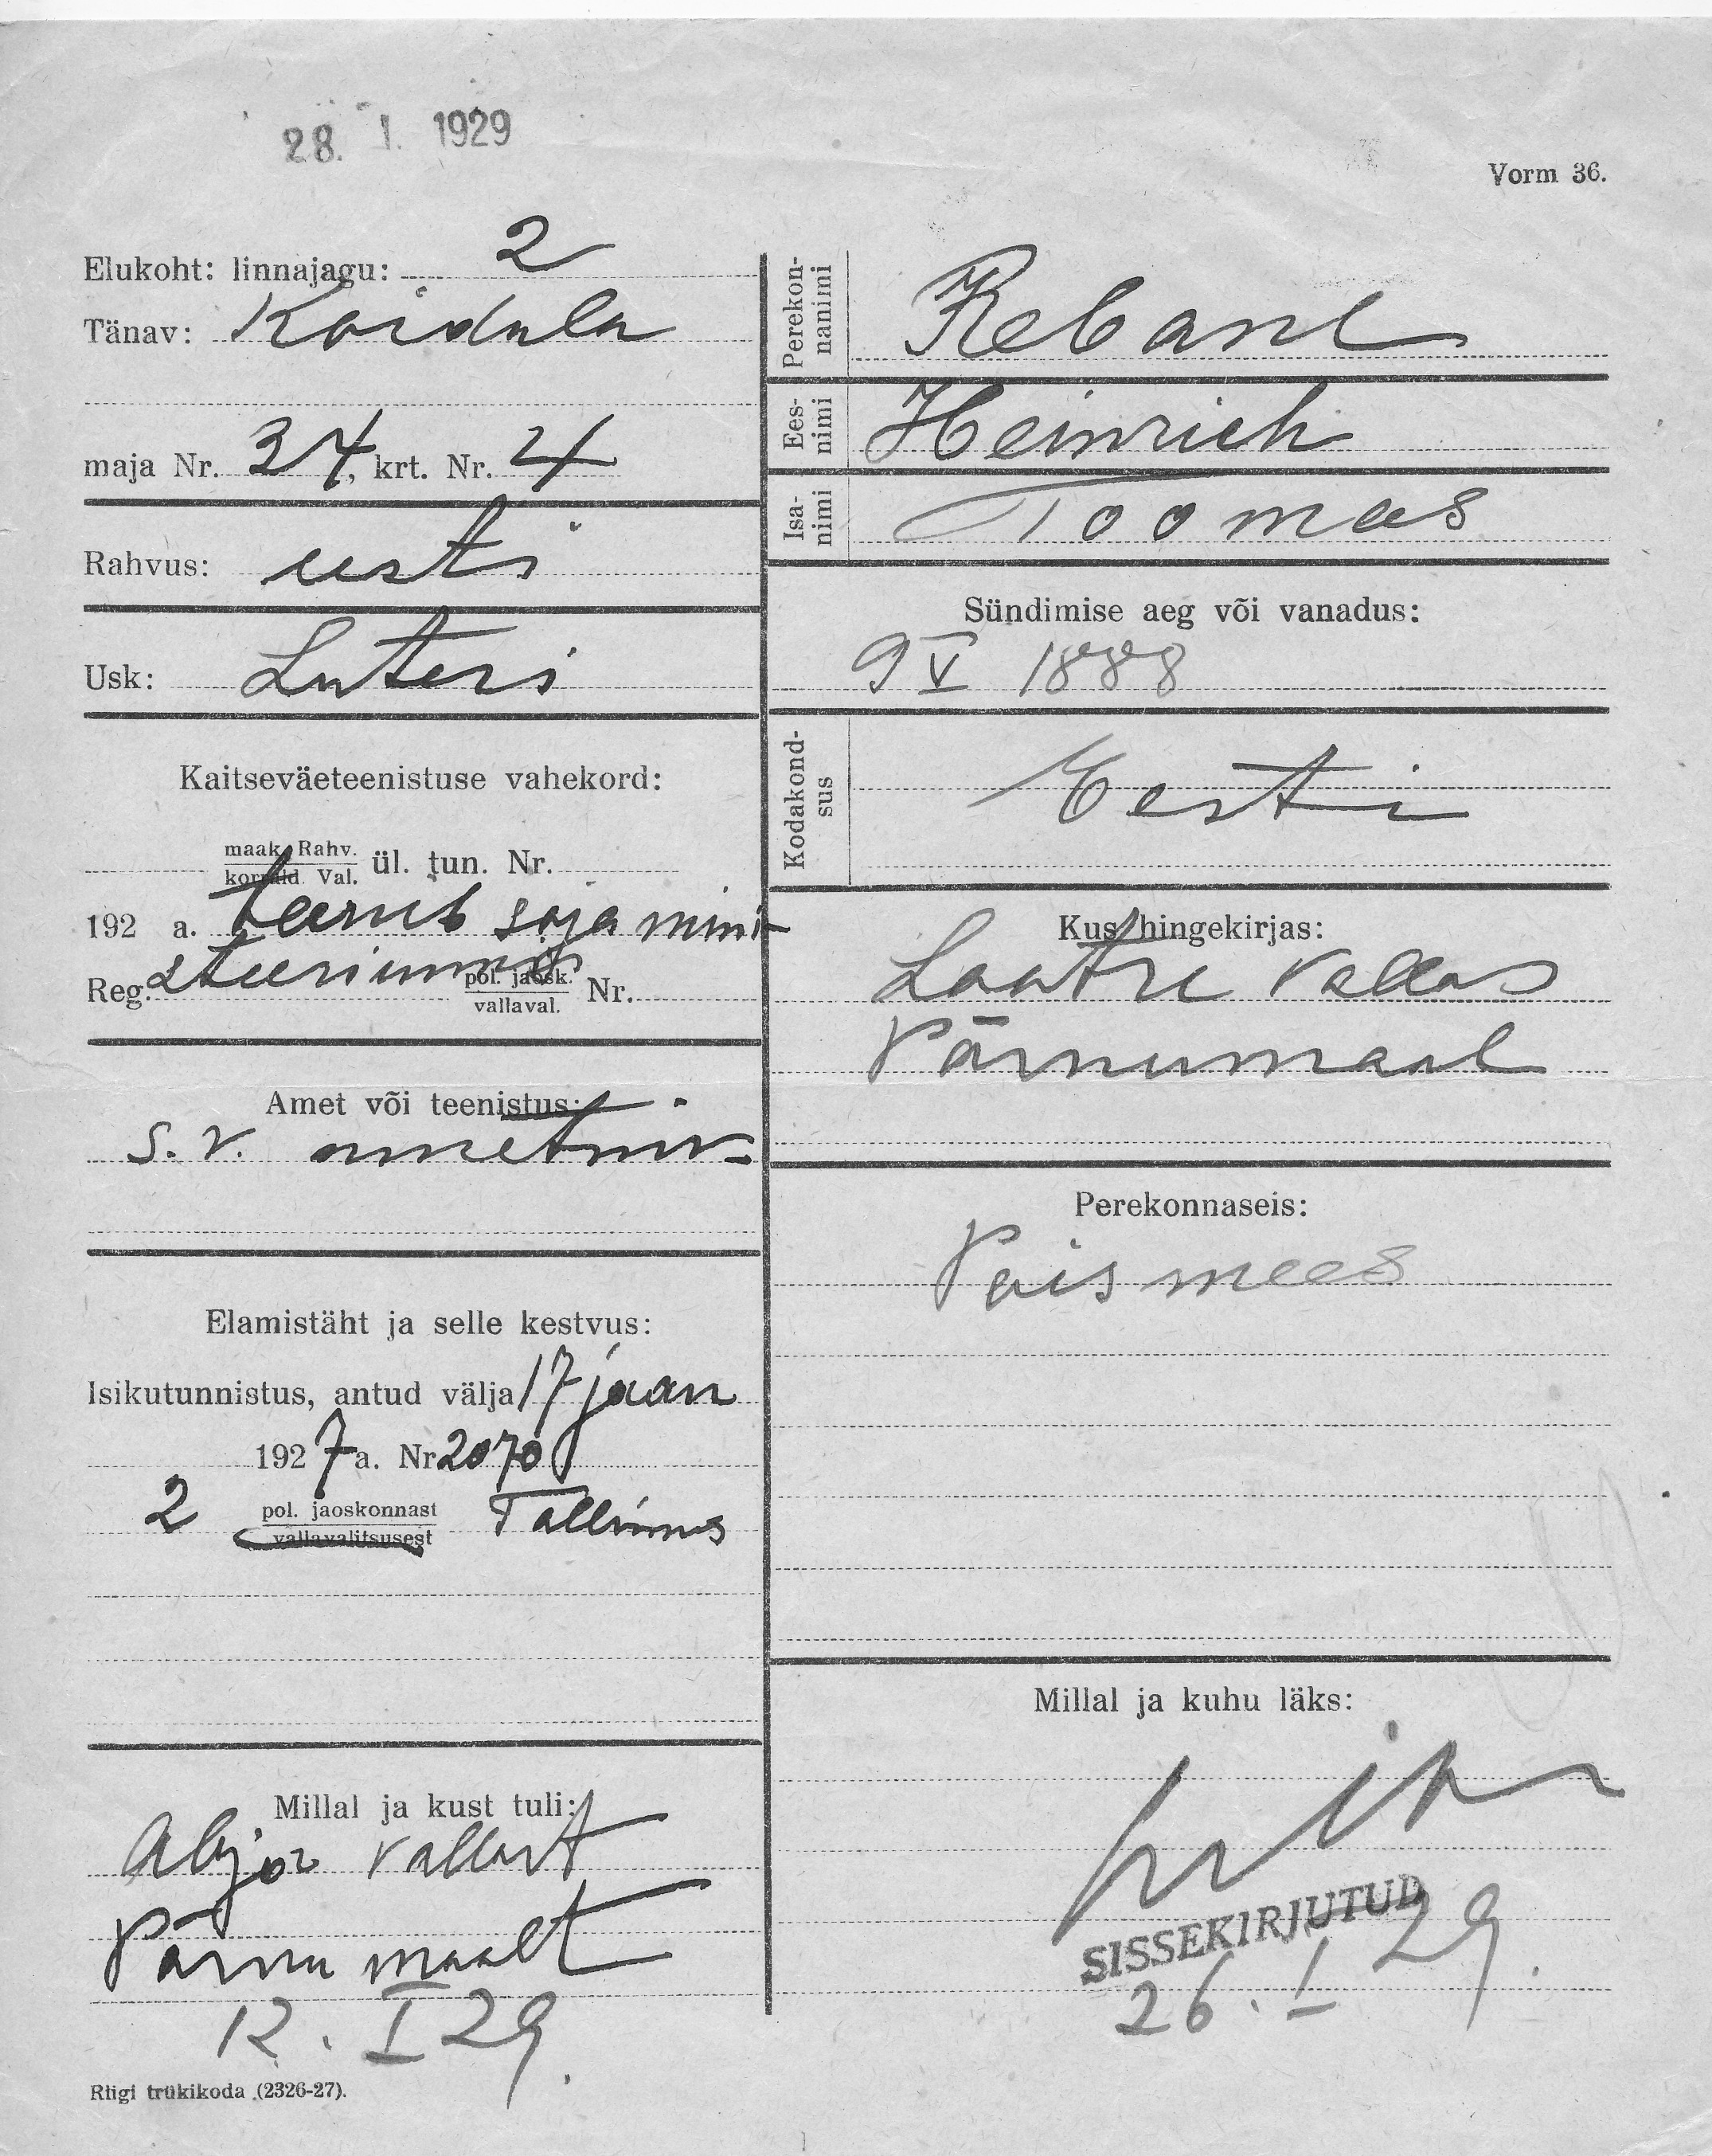 28. I. 1929
Vorm 36.
Elukoht: linnajagu: 2
Tänav: Koidula
maja Nr. 34, krt. Nr. 4
Rahvus: eesti
Usk: Luteri
Kaitseväeteenistuse vahekord:
maak. Rahv.
korrald Val. ül. tun. Nr.
192 a. teenib sõja mini-
Reg. steeriumis pol. jaosk. Nr.
vallaval.
Amet või teenistus:
S. V. ametnik
Elamistäht ja selle kestvus:
Isikutunnistus, antud välja 17 jaan
1927 a. Nr 2070
2 pol. jaoskonnast Tallinnas
vallavalitsusest
Millal ja kust tuli:
Abja vallast
Pärnumaalt
12. I 29.
Riigi trükikoda (2326-27).
Perekon-
nanimi Rebane
Ees-
nimi Heinrich
Isa-
nimi Toomas
Sündimise aeg või vanadus:
9 V 1888
Kodakond-
sus Eesti
Kus hingekirjas:
Laatre vallas
Pärnumaal
Perekonnaseis:
Poismees
Millal ja kuhu läks:
SISSEKIRJUTUD
26. I 29.